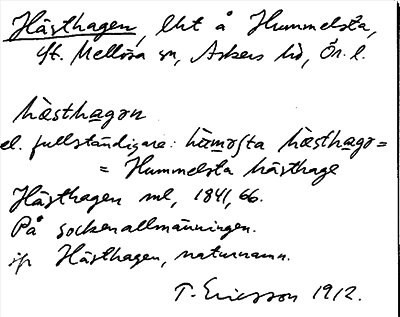 Hästhagen, lht å Hummelsta,
St. Mellösa sn, Askers hd, Ön. l.
hästhagon
el. fullständigare: hamosta hästhago=
= Hummelsta hästhage
Hästhagen ml, 1841, 66.
På sockenallmänningen.
jfr Hästhagen, naturnamn.
T. Ericsson 1912.